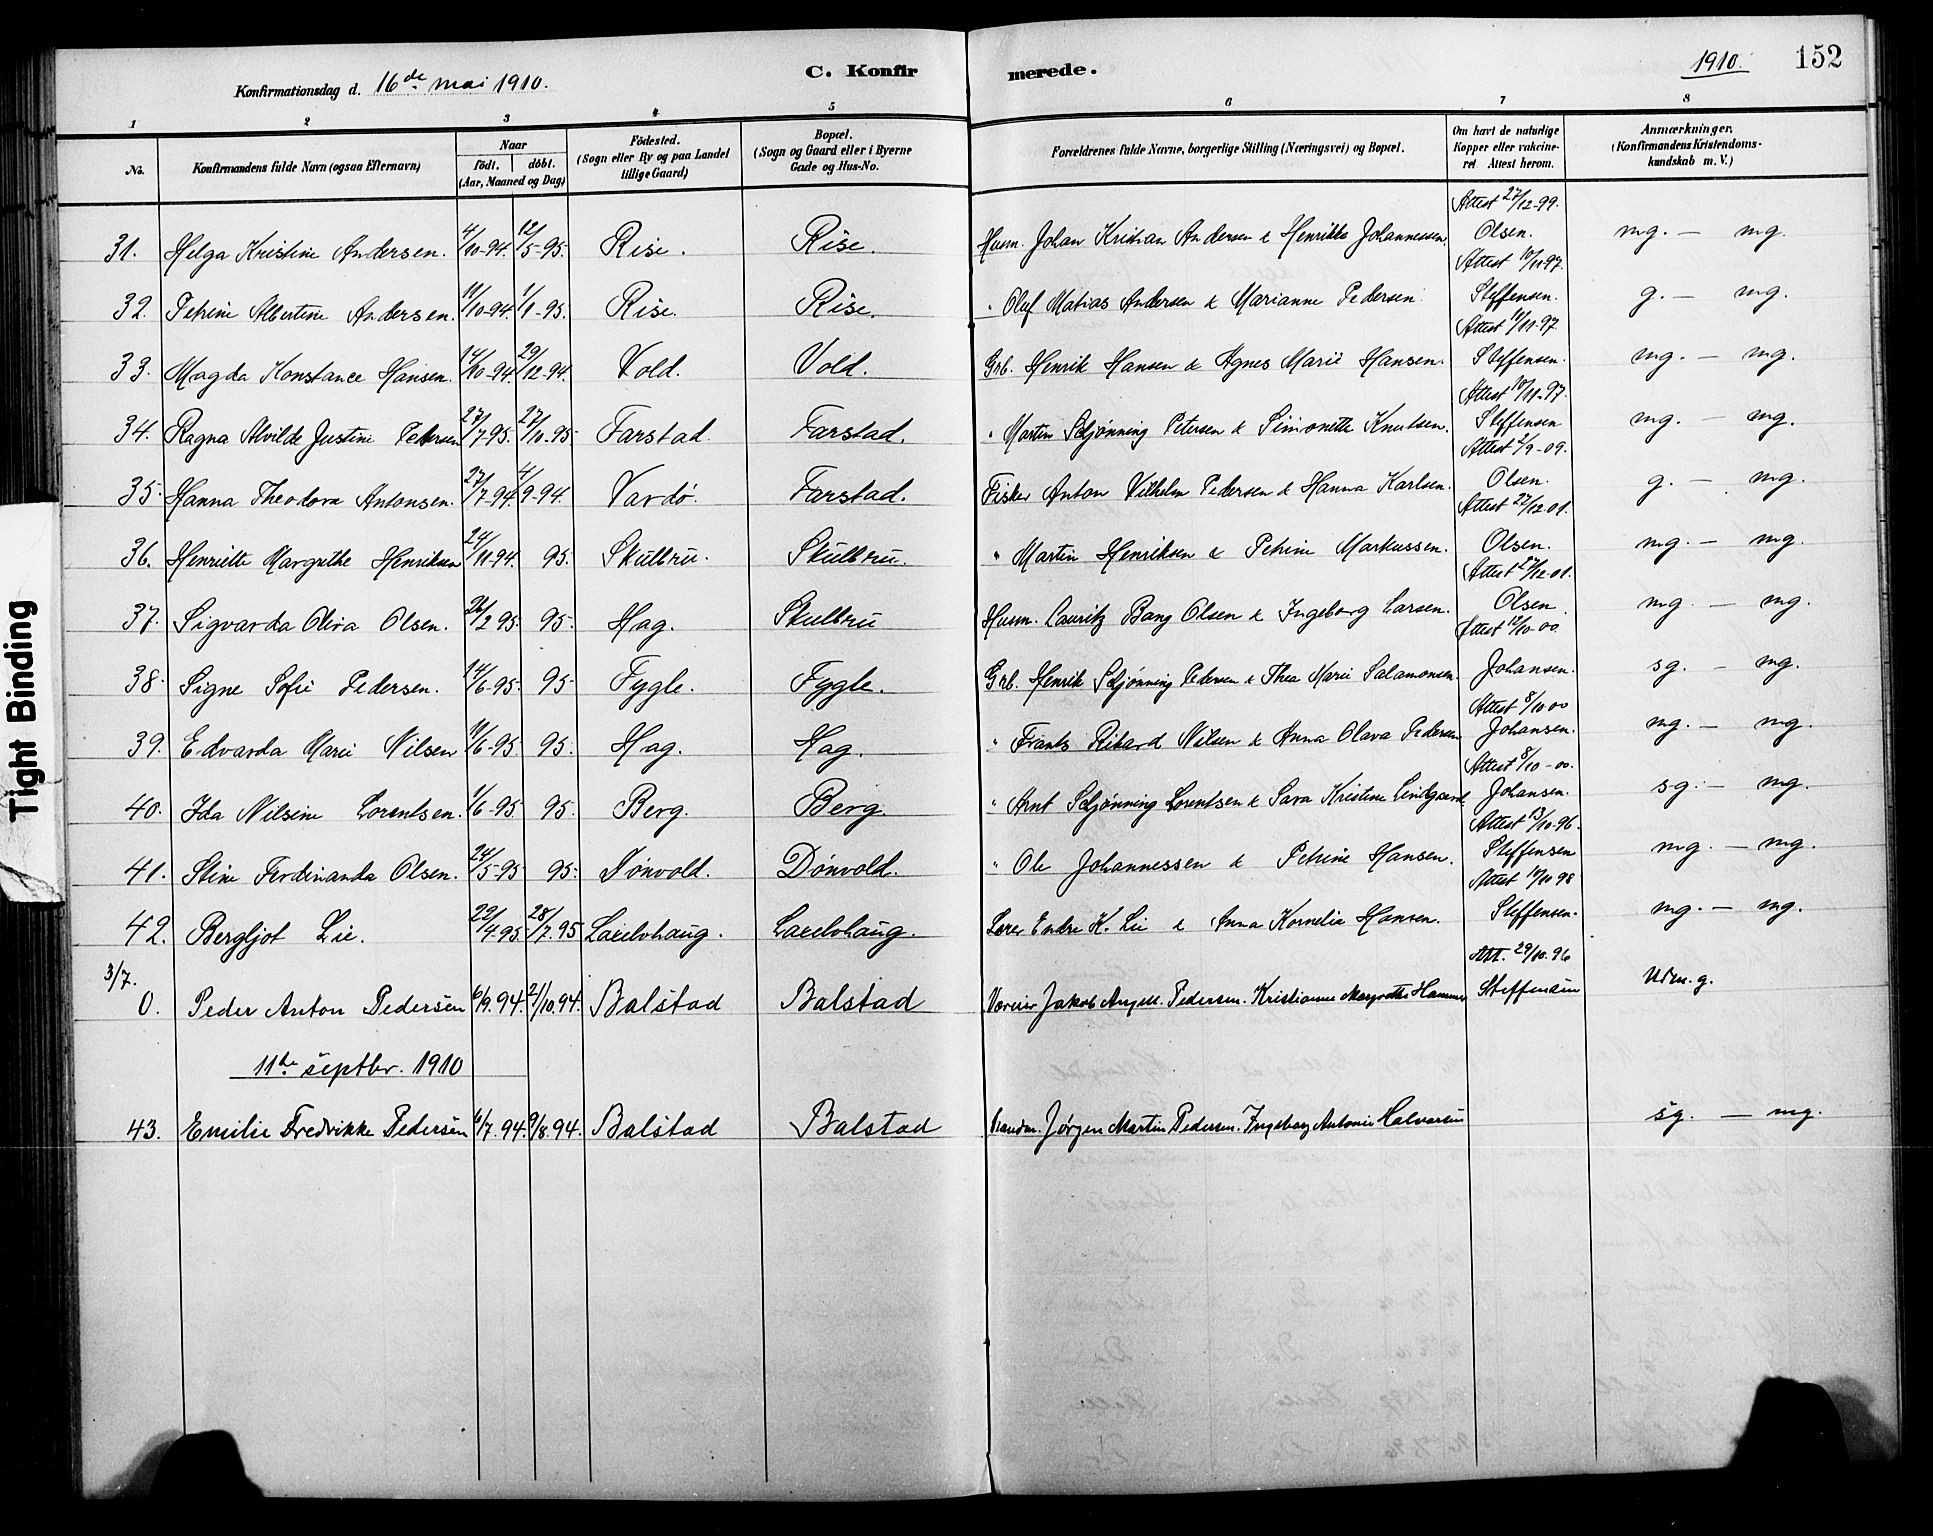 C. Konfirmerede.
1910.
152
Konfirmationsdag d. 16de mai 1910.
1 2 3 4 5 6 7 8
No. Konfirmandens fulde Navn (ogsaa Efternavn) Naar födt. döbt. (Aar, Maaned og Dag) Födested. (Sogn eller By og paa Landet tillige Gaard) Bopæl. (Sogn og Gaard eller i Byerne Gade og Hus-No. Forældrenes fulde Navne, borgerlige Stilling (Næringsvei) og Bopæl. Om havt de naturlige Kopper eller vakcineret. Attest herom. Anmærkninger. (Konfirmandens Kristendomskundskab m. V.)
31. Helga Kristine Andersen. 4/10-94. 12/5-95. Rise. Rise. Husm. Johan Kristian Andersen & Henrikke Johannessen. Attest 27/12-99. Olsen. mg. — mg.
32. Petrine Albertine Andersen. 11/10-94. 1/1-95. Rise. Rise. " Oluf Matias Andersen & Marianne Pedersen. Attest 10/11-97. Steffensen. g. — mg.
33. Magda Konstance Hansen. 14/10-94. 29/12-94. Vold. Vold. Grb. Henrik Hansen & Agnes Marie Hansen. Attest 10/11-97. Steffensen. mg. — mg.
34. Ragna Alvilde Justine Petersen 27/7-95. 27/10-95. Farstad. Farstad. " Martin Schjønning Petersen & Simonette Knutsen. Attest 10/11-97. Steffensen mg. — mg.
35. Hanna Theodora Antonsen. 27/7-94. 4/9-94. Vardö. Farstad. Fisker Anton Vilhelm Pedersen & Hanna Karlsen. Attest 2/9-09. Olsen. g. — mg.
36. Henriette Margrethe Henriksen 24/11-94. 95. Skulbru. Skulbru. " Martin Henriksen & Petrine Markussen. Attest 27/12-01. Olsen. mg. — mg.
37. Sigvarda Oliva Olsen. 26/2 95. 95. Hag. Skulbru Husm. Lauritz Bang Olsen & Ingeborg Larsen. Attest 27/12-01. Olsen. mg. — mg.
38. Signe Sofie Pedersen. 14/6-95. 95. Fygle. Fygle. Grb. Henrik Schjønning Pedersen & Thea Marie Salamonsen. Attest 12/10-00. Johansen. sg. — mg.
39. Edvarda Marie Nilsen 11/6-95. 95. Hag. Hag. " Frants Rikard Nilsen & Anna Olava Pedersen Attest 8/10 00 Johansen. mg. — mg.
40. Ida Nilsine Lorentsen. 1/6-95. 95. Berg. Berg. " Arnt Schjønning Lorentsen & Sara Kristine Lindgaard Attest 8/10-00. Johansen. sg. — mg.
41. Stine Ferdinanda Olsen. 24/5-95 95. Dönvold. Dönvold. " Ole Johannessen & Petrine Hansen. Attest 13/10-96. Steffensen mg. — mg.
42. Bergljot Lie. 22/4-95. 28/7.95 Lærer Endre K. Lie & Anna Kornelia Hansen. Attest 10/10 98 Steffensen. mg. — mg.
3/7.
0. Peder Anton Pedersen 6/9.94. 21/10.94. Balstad Balstad Væreier Jakob Angell Pedersen. Kristianne Margrethe Hammer Att. 29/10.96 Steffensen Udm. g.
11te septbr. 1910
43. Emilie Fredrikke Pedersen 6/7.94. 9/8.94. Balstad Balstad Jørgen Martin Pedersen. Ingeborg Antonie Halvorsen sg. — mg.
Tight Binding